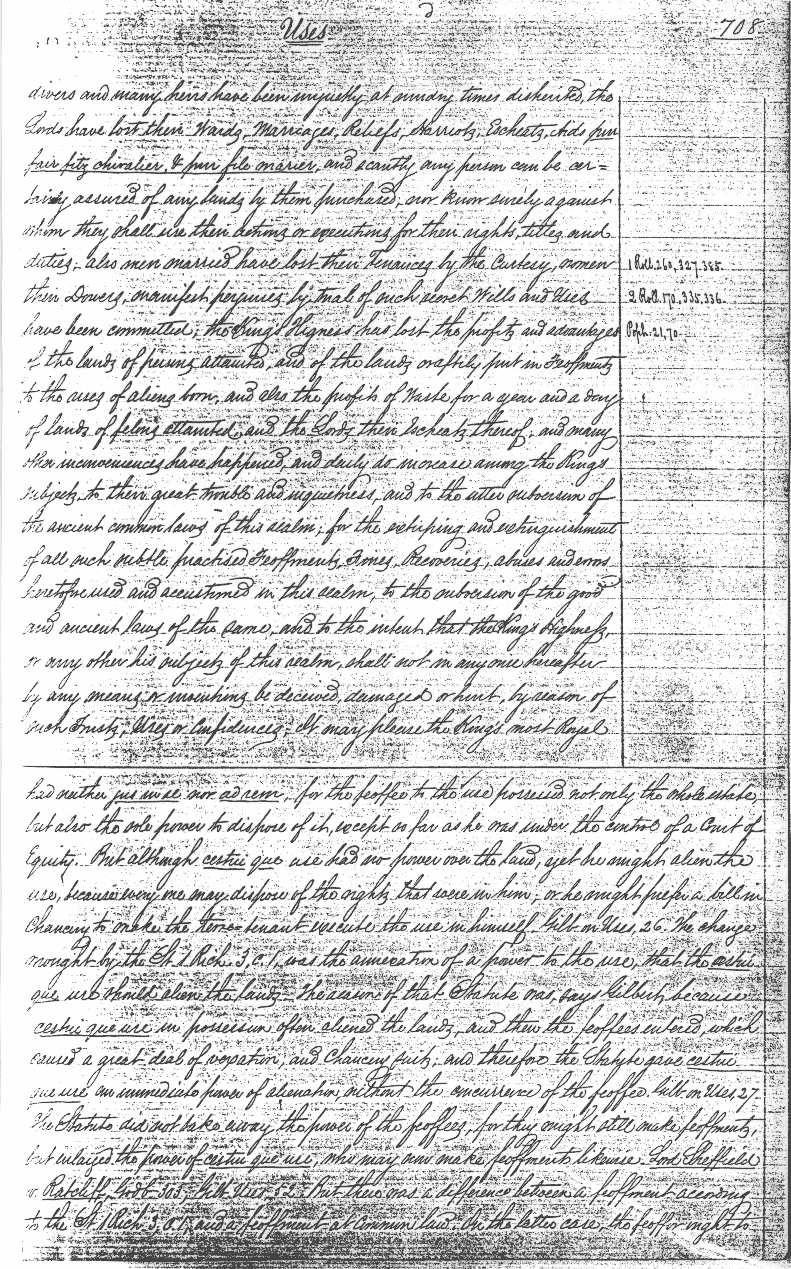 Uses
708
divers and many heirs have been unjustly at sundry times disherited, the
Lords have lost their Wards, Marriages, Reliefs, Harriots, Escheats, Aids pur
fair fitz chivalier, & pur file marier, and scantly any person can be cer=
tainly assured of any lands by them purchased, nor know surely against
whom they shall use their actions or executions for their rights, titles and
duties; also men married have lost their Tenances by the Curtesy, women
their Dowers; manifest perjuries by trial of such secret Wills and Uses
have been committed; the King's Highness has lost the profits and advantages
of the lands of persons attainted, and of the lands craftily put in Feoffments
to the uses of aliens born, and also the profits of Waste for a year and a day
of lands of felons attainted, and the Lords their Escheats thereof; and many
other inconveniences have happened, and daily do increase among the King's
subjects, to their great trouble and inquietness, and to the utter subversion of
the ancient common laws of this realm; for the extirping and extinguishment
of all such subtle practised Feoffments, Fines, Recoveries, abuses and errors
heretofore used and accustomed in this realm, to the subversion of the good
and ancient laws of the same, and to the intent that the King's Highness,
or any other his subjects of this realm, shall not in any wise hereafter
by any means or inventions be deceived, damaged or hurt, by reason of
such Trusts, Uses or Confidences; It may please the King's most Royal
1 Roll. 260, 327. 385.
2 Roll. 170, 335, 336.
Poph. 21, 70.
had neither jus in se nor ad rem, for the feoffee to the use possessed not only the whole estate,
but also the sole power to dispose of it, except so far as he was under the control of a Court of
Equity. But although cestui que use had no power over the land, yet he might alien the
use, because every one may dispose of the rights that were in him; or he might prefer a bill in
Chancery to make the terre-tenant execute the use in himself. Gilb on Uses, 26. The change
wrought by the St. 1 Rich. 3, c. 1, was the annexation of a power to the use, that the cestui
que use should alien the lands. The reason of that Statute was, says Gilbert, because
cestui que use in possession often aliened the lands, and then the feoffees entered, which
caused a great deal of vexation, and Chancery suits; and therefore the Statute gave cestui
que use an immediate power of alienation, without the concurrence of the feoffee. Gilb on Uses, 27.
The Statute did not take away the power of the feoffees, for they might still make feoffments,
but enlarged the power of cestui que use, who may now make feoffments likewise. Lord Sheffield
v. Ratcliff, Godb. 303; Gilb. Uses, 52. But there was a difference between a feoffment according
to the St. 1 Rich. 3, c. 1, and a feoffment at Common law. In the latter case, the feoffor ought to